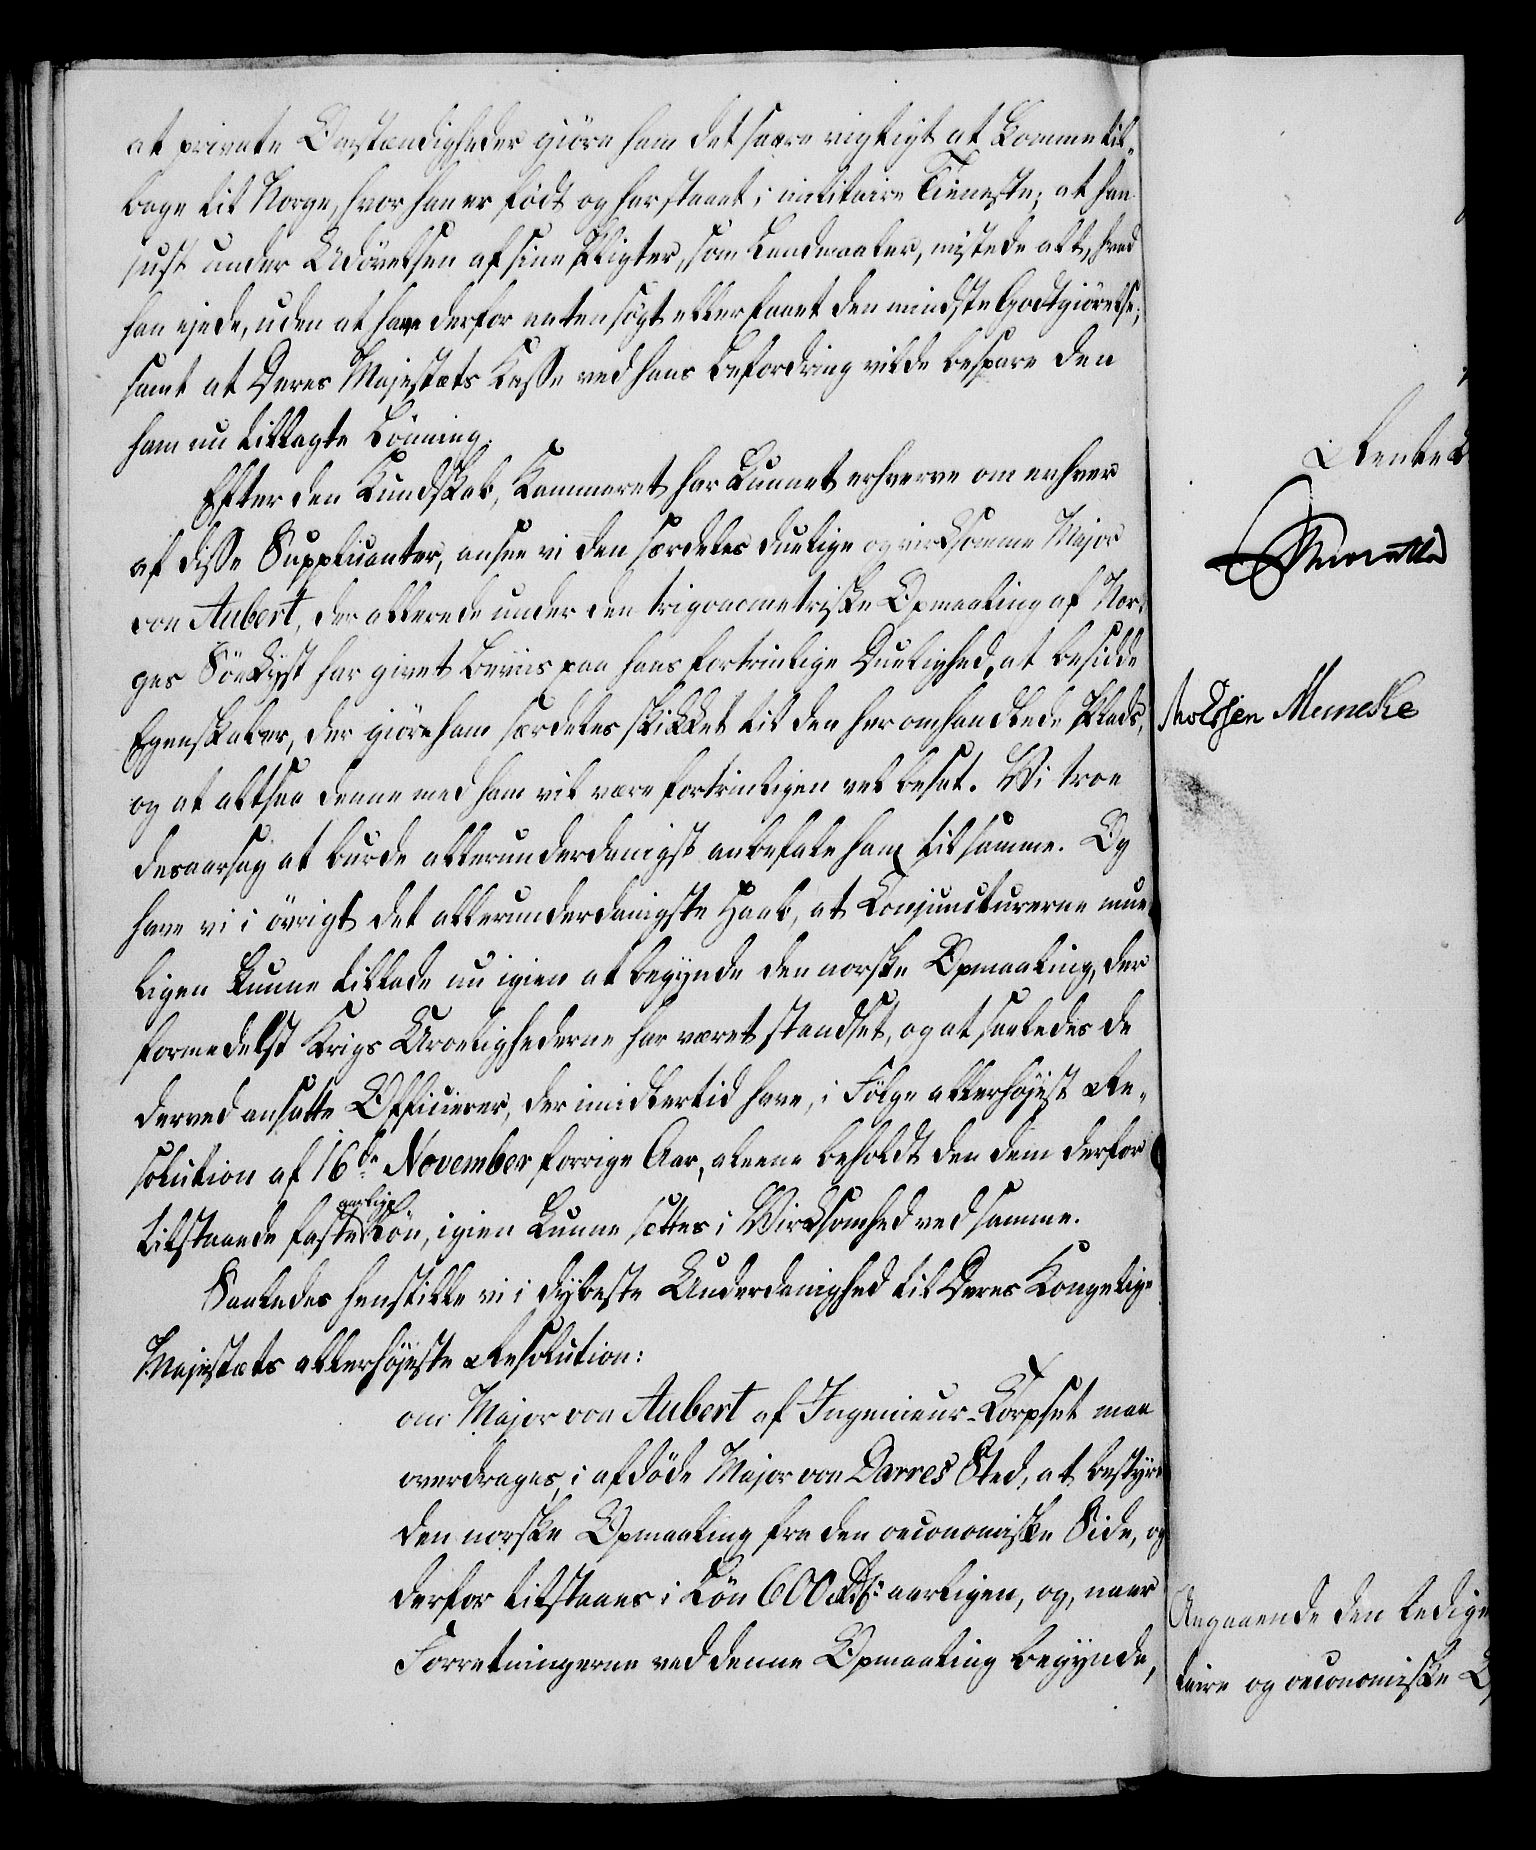 at private Omstændigheder giöre ham det saare vigtigt at komme til-
bage til Norge, hvor han er født og har staaet i militaire Tieneste; at han
just under Udövelsen af sine Pligter, som Landmaaler, mistede alt, hvad
han ejede, uden at have derfor enten sögt eller faaet den mindste Godtgiörelse;
samt at Deres Majestæts Kasse ved hans Befordring vilde bespare den
ham nu tillagte Lönning.
Efter den Kundskab, Kammeret har kunnet erhverve om enhver
af disse Supplicanter, ansee vi den særdeles duelige og virksomme Major
von Aubert, der allerede under den trigonometriske Opmaaling af Nor-
ges Söekyst har givet Beviis paa hans fortrinlige Duelighed, at besidde
Egenskaber, der giöre ham særdeles skikket til den her omhandlede Plads,
og at altsaa denne med ham vil være fortrinligen vel besat. Vi troe
desaarsag at burde allerunderdanigst anbefale ham til samme. Og
have vi i övrigt det allerunderdanigste Haab, at Conjuncturerne mue-
ligen kunne tillade nu igien at begynde den norske Opmaaling, der
formedelst Krigs Uroelighederne har været standset, og at saaledes de
derved ansatte Officierer, der imidlertid have, i Fölge allerhöjest Re-
solution af 16de November forrige Aar, aleene beholdt den dem derfor
tilstaaede faste aarlige Lön, igien kunne sættes i Virksomhed ved samme.
Saaledes henstille vi i dybeste Underdanighed til Deres Kongelige
Majestæts allerhöjeste Resolution:
om Major von Aubert af Ingenieur-Corpset maa
overdrages, i afdöde Major von Darres Sted, at bestyre
den norske Opmaaling fra den oeconomiske Side, og
derfor tilstaaes i Lön 600 Rd. aarligen, og, naar
Forretningerne ved denne Opmaaling begynde,
Rentek
Meincke
Angaaende den ledige
taire og oeconomiske